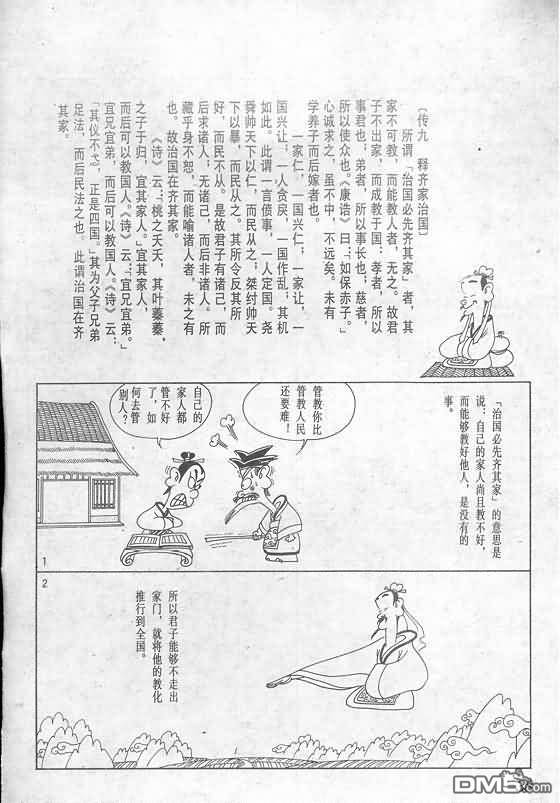 〔传九　释齐家治国〕
所谓「治国必先齐其家」者，其
家不可教，而能教人者，无之。故君
子不出家，而成教于国：孝者，所以
事君也；弟者，所以事长也；慈者，
所以使众也。《康诰》曰：「如保赤子。」
心诚求之，虽不中，不远矣。未有
学养子而后嫁者也。
一家仁，一国兴仁；一家让，一
国兴让；一人贪戾，一国作乱；其机
如此。此谓一言偾事，一人定国。尧
舜帅天下以仁，而民从之；桀纣帅天
下以暴，而民从之。其所令反其所
好，而民不从。是故君子有诸己，而
后求诸人；无诸己，而后非诸人。所
藏乎身不恕，而能喻诸人者，未之有
也。故治国在齐其家。
《诗》云：「桃之夭夭，其叶蓁蓁，
之子于归，宜其家人。」宜其家人，
而后可以教国人。《诗》云：「宜兄宜弟。」
宜兄宜弟，而后可以教国人。《诗》云：
「其仪不忒，正是四国。」其为父子兄弟
足法，而后民法之也。此谓治国在齐
其家。
「治国必先齐其家」的意思是
说：自己的家人尚且教不好，
而能够教好他人，是没有的
事。
管教你比
管教人民
还要难！
自己的
家人都
管不好
了，如
何去管
别人？
1
2
所以君子能够不走出
家门，就将他的教化
推行到全国。
DM5.com